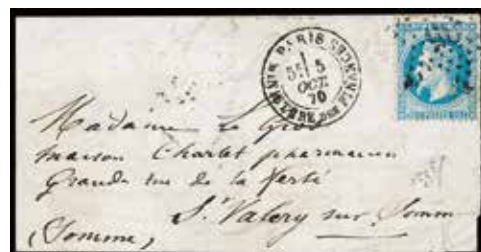 PARIS MINISTÈRE DES FINANCES
5E 5
OCT.
70
Madame Le Gros
maison Chartet pharmacien
Grande rue de la ferté
St Valery sur Somme
(Somme)